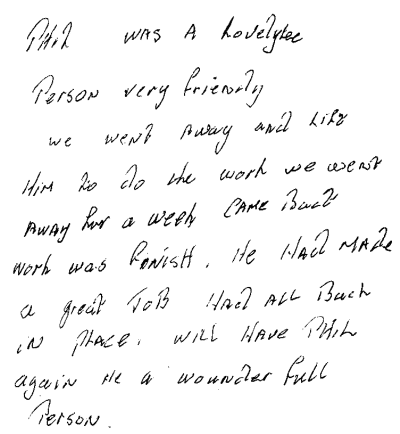 PHIL WAS A Lovelylee
PERSON very friendly
we went AWAY and Lift
HIM to do the work we went
AWAY for a week CAME BACK
work was FINISH. HE HAD MADE
a great JOB HAD ALL BACK
IN PLACE. WILL HAVE PHIL
again HE a wounder full
PERSON.